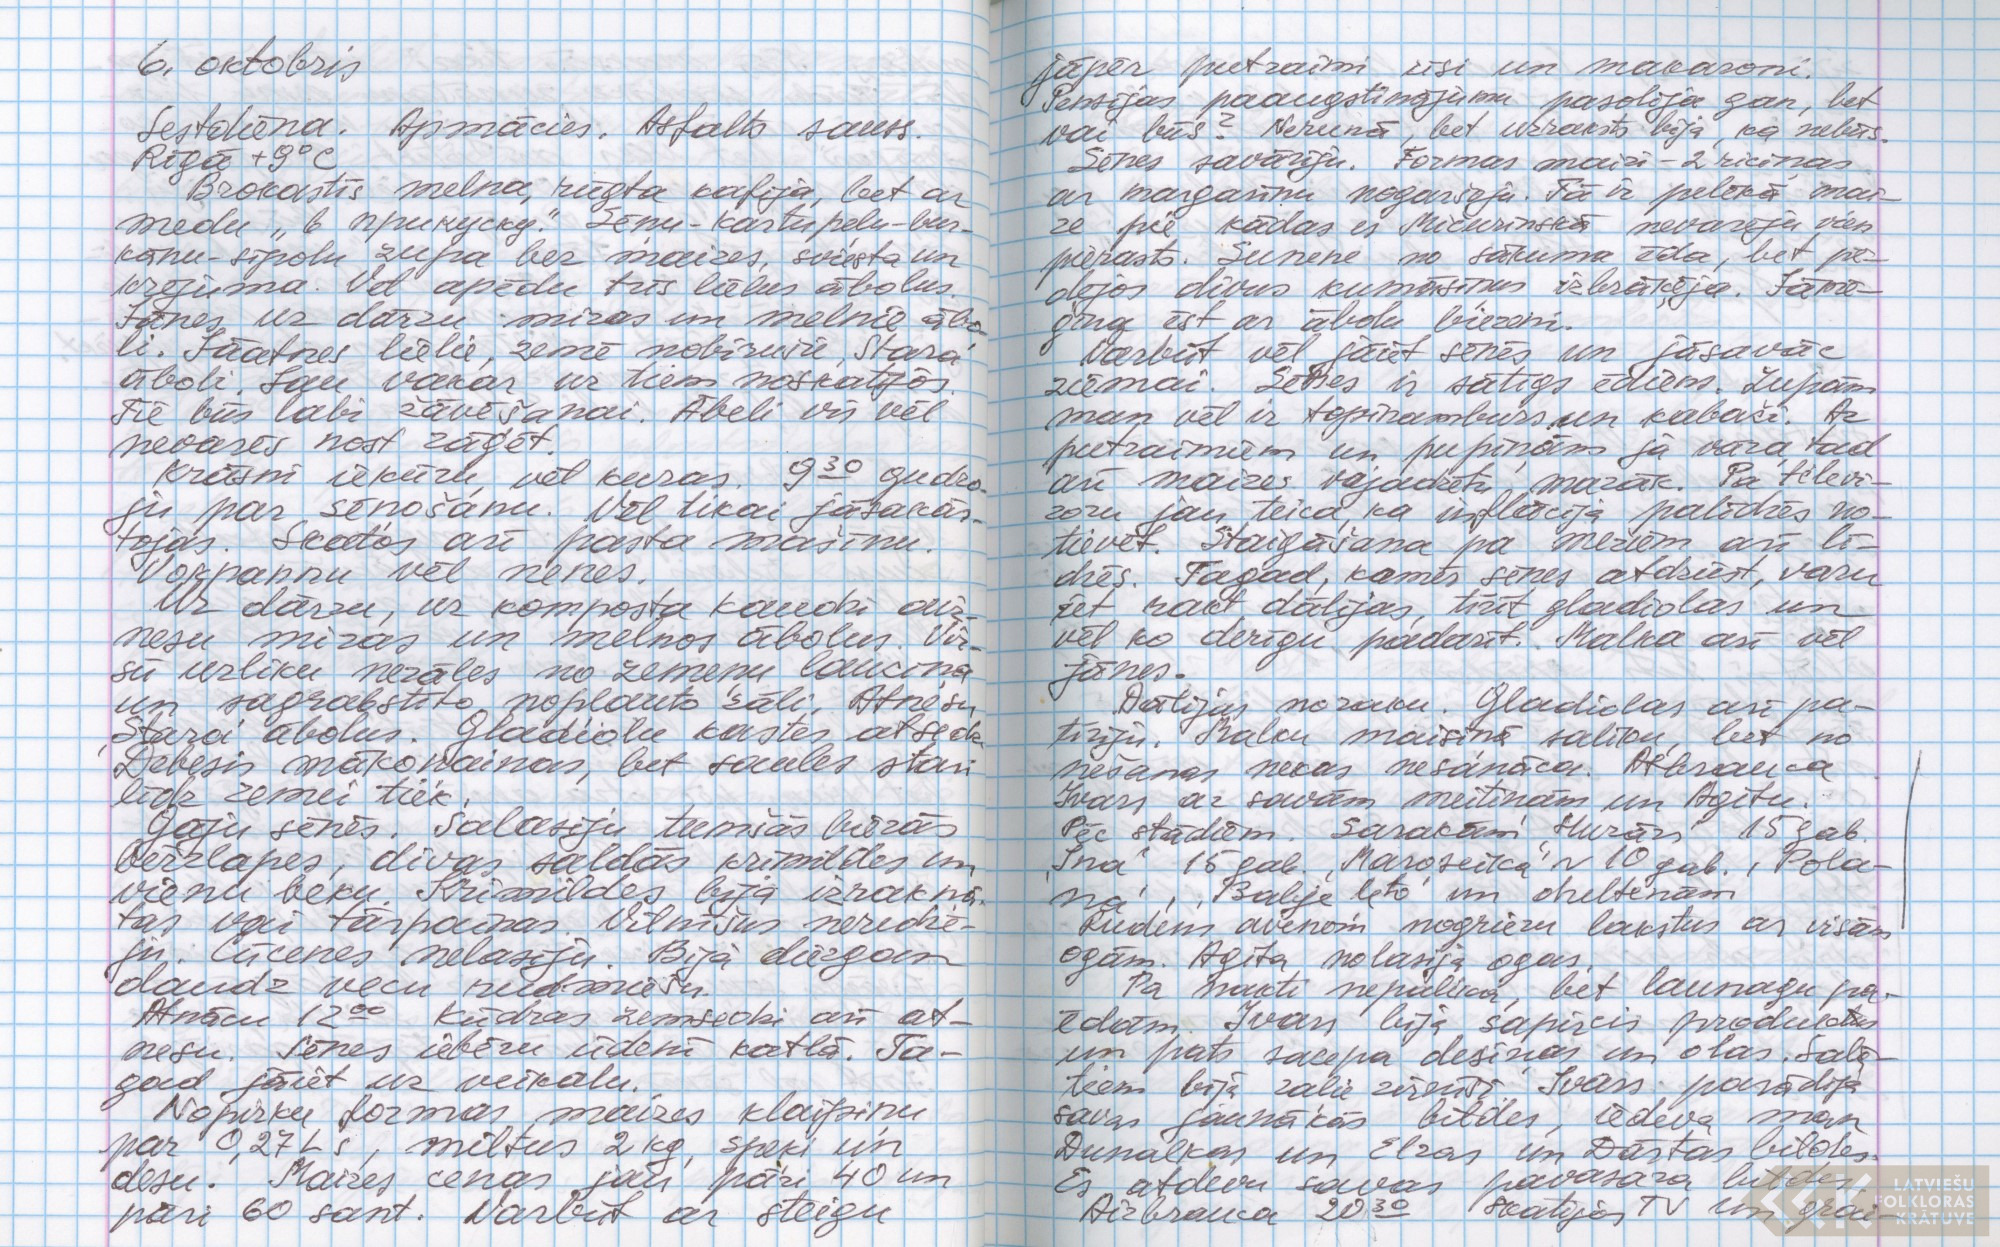 6. oktobris
Sestdiena. Apmācies. Asfalts sauss.
Rīgā +9°C
Brokastīs melna, rūgta kafija, bet ar
medu „в прикуску." Sēņu-kartupeļu-bur-
kānu-sīpolu zupa bez maizes, sviesta un
krējuma. Vēl apēdu trīs lielus ābolus.
Jānes uz dārzu mizas un melnie ābo-
li. Jāatnes lielie, zemē nobirušie, Stara
āboli. Jau vakar uz tiem noskatījos.
Tie būs labi žāvēšanai. Ābeli vis vēl
nevarēs nost zāģēt.
Krāsni iekūru, vēl kuras. 9³⁰ gudro-
ju par sēņošanu. Vēl tikai jāsakās-
tojas. Skatos arī pasta mašīnu.
Vokpannu vēl nenes.
Uz dārzu, uz komposta kaudzi aiz-
nesu mizas un melnos ābolus. Vir-
sū uzliku nezāles no zemeņu lauciņa
un sagrabstīto nopļauto zāli. Atnesu
Stara ābolus. Gladiolu kastes atsedzu
Debesis mākoņainas, bet saules stari
līdz zemei tiek.
Gāju sēnēs. Salasīju tumšās biezās
bērzlapes, divas saldās krimildes un
vienu beku. Krimildes bija izraknā-
tas vai tārpainas. Vilnīšus neredzē-
ju. Cūcenes nelasīju. Bija diezgan
daudz vecu rudmiešu.
Atnācu 12⁰⁰ Kūdras zemsedzi arī at-
nesu. Sēnes iebēru ūdenī katlā. Ta-
gad jāiet uz veikalu.
Nopirku formas maizes klaipiņu
par 0,27 Ls, miltus 2 kg, speķi un
desu. Maizes cenas jau pāri 40 un
pāri 60 sant. Varbūt ar steigu
jāpēr putraimi rīsi un makaroni.
Pensijas paaugstinājumu pasolīja gan, bet
vai būs? Nerunā, bet uzraksts bija, ka nebūs.
Sēnes savārīju. Formas maizi - 2 riciņas
ar margarīnu nogaršoju. Tā ir pelēkā mai-
ze pie kādas es Mičurinskā nevarēju vien
pierast. Sunene no sākuma ēda, bet pē-
dējos divus kumāsiņus izbrāķēja. Jāmē-
ģina ēst ar ābolu biezeni.
Varbūt vēl jāiet sēnēs un jāsavāc
ziemai. Sēnes ir sātīgs ēdiens. Zupām
man vēl ir topinamburs un kabači. Ar
putraimiem un pupiņām ja vāra, tad
arī maizes vajadzētu mazāk. Pa televi-
zoru jau teica, ka inflācija palīdzēs no-
tievēt. Staigāšana pa mežiem arī lī-
dzēs. Tagad, kamēr sēnes atdziest, varu
iet rakt dālijas, tīrīt gladiolas un
vēl ko derīgu padarīt. Malka arī vēl
jānes.
Dālijas noraku. Gladiolas arī pa-
tīrīju. Malku maisiņā saliku, bet no
nešanas nekas nesanāca. Atbrauca
Ivars ar savām meitiņām un Agitu.
Pēc stādiem. Sarakām „Husārs" 15 gab.
„Ina" 15 gab. „Maroseika" ~ 10 gab., „Poļa-
na", „Babje ļeto" un dzeltenām
Rudens avenēm nogriezu lakstus ar visām
ogām. Agita nolasīja ogas.
Pa nakti nepalika, bet launagu pa-
ēdām. Ivars bija sapircis produktus
un pats sacepa desiņas un olas. Salā-
tiem bija zaļie zirnīši. Ivars parādīja
savas jaunākās bildes, iedeva man
Dunalkas un Elzas un Dārtas bildes.
Es atdevu savas pavasara bildes
Aizbrauca 20³⁰ Skatījos TV un grai-
LATVIEŠU
FOLKLORAS
KRĀTUVE